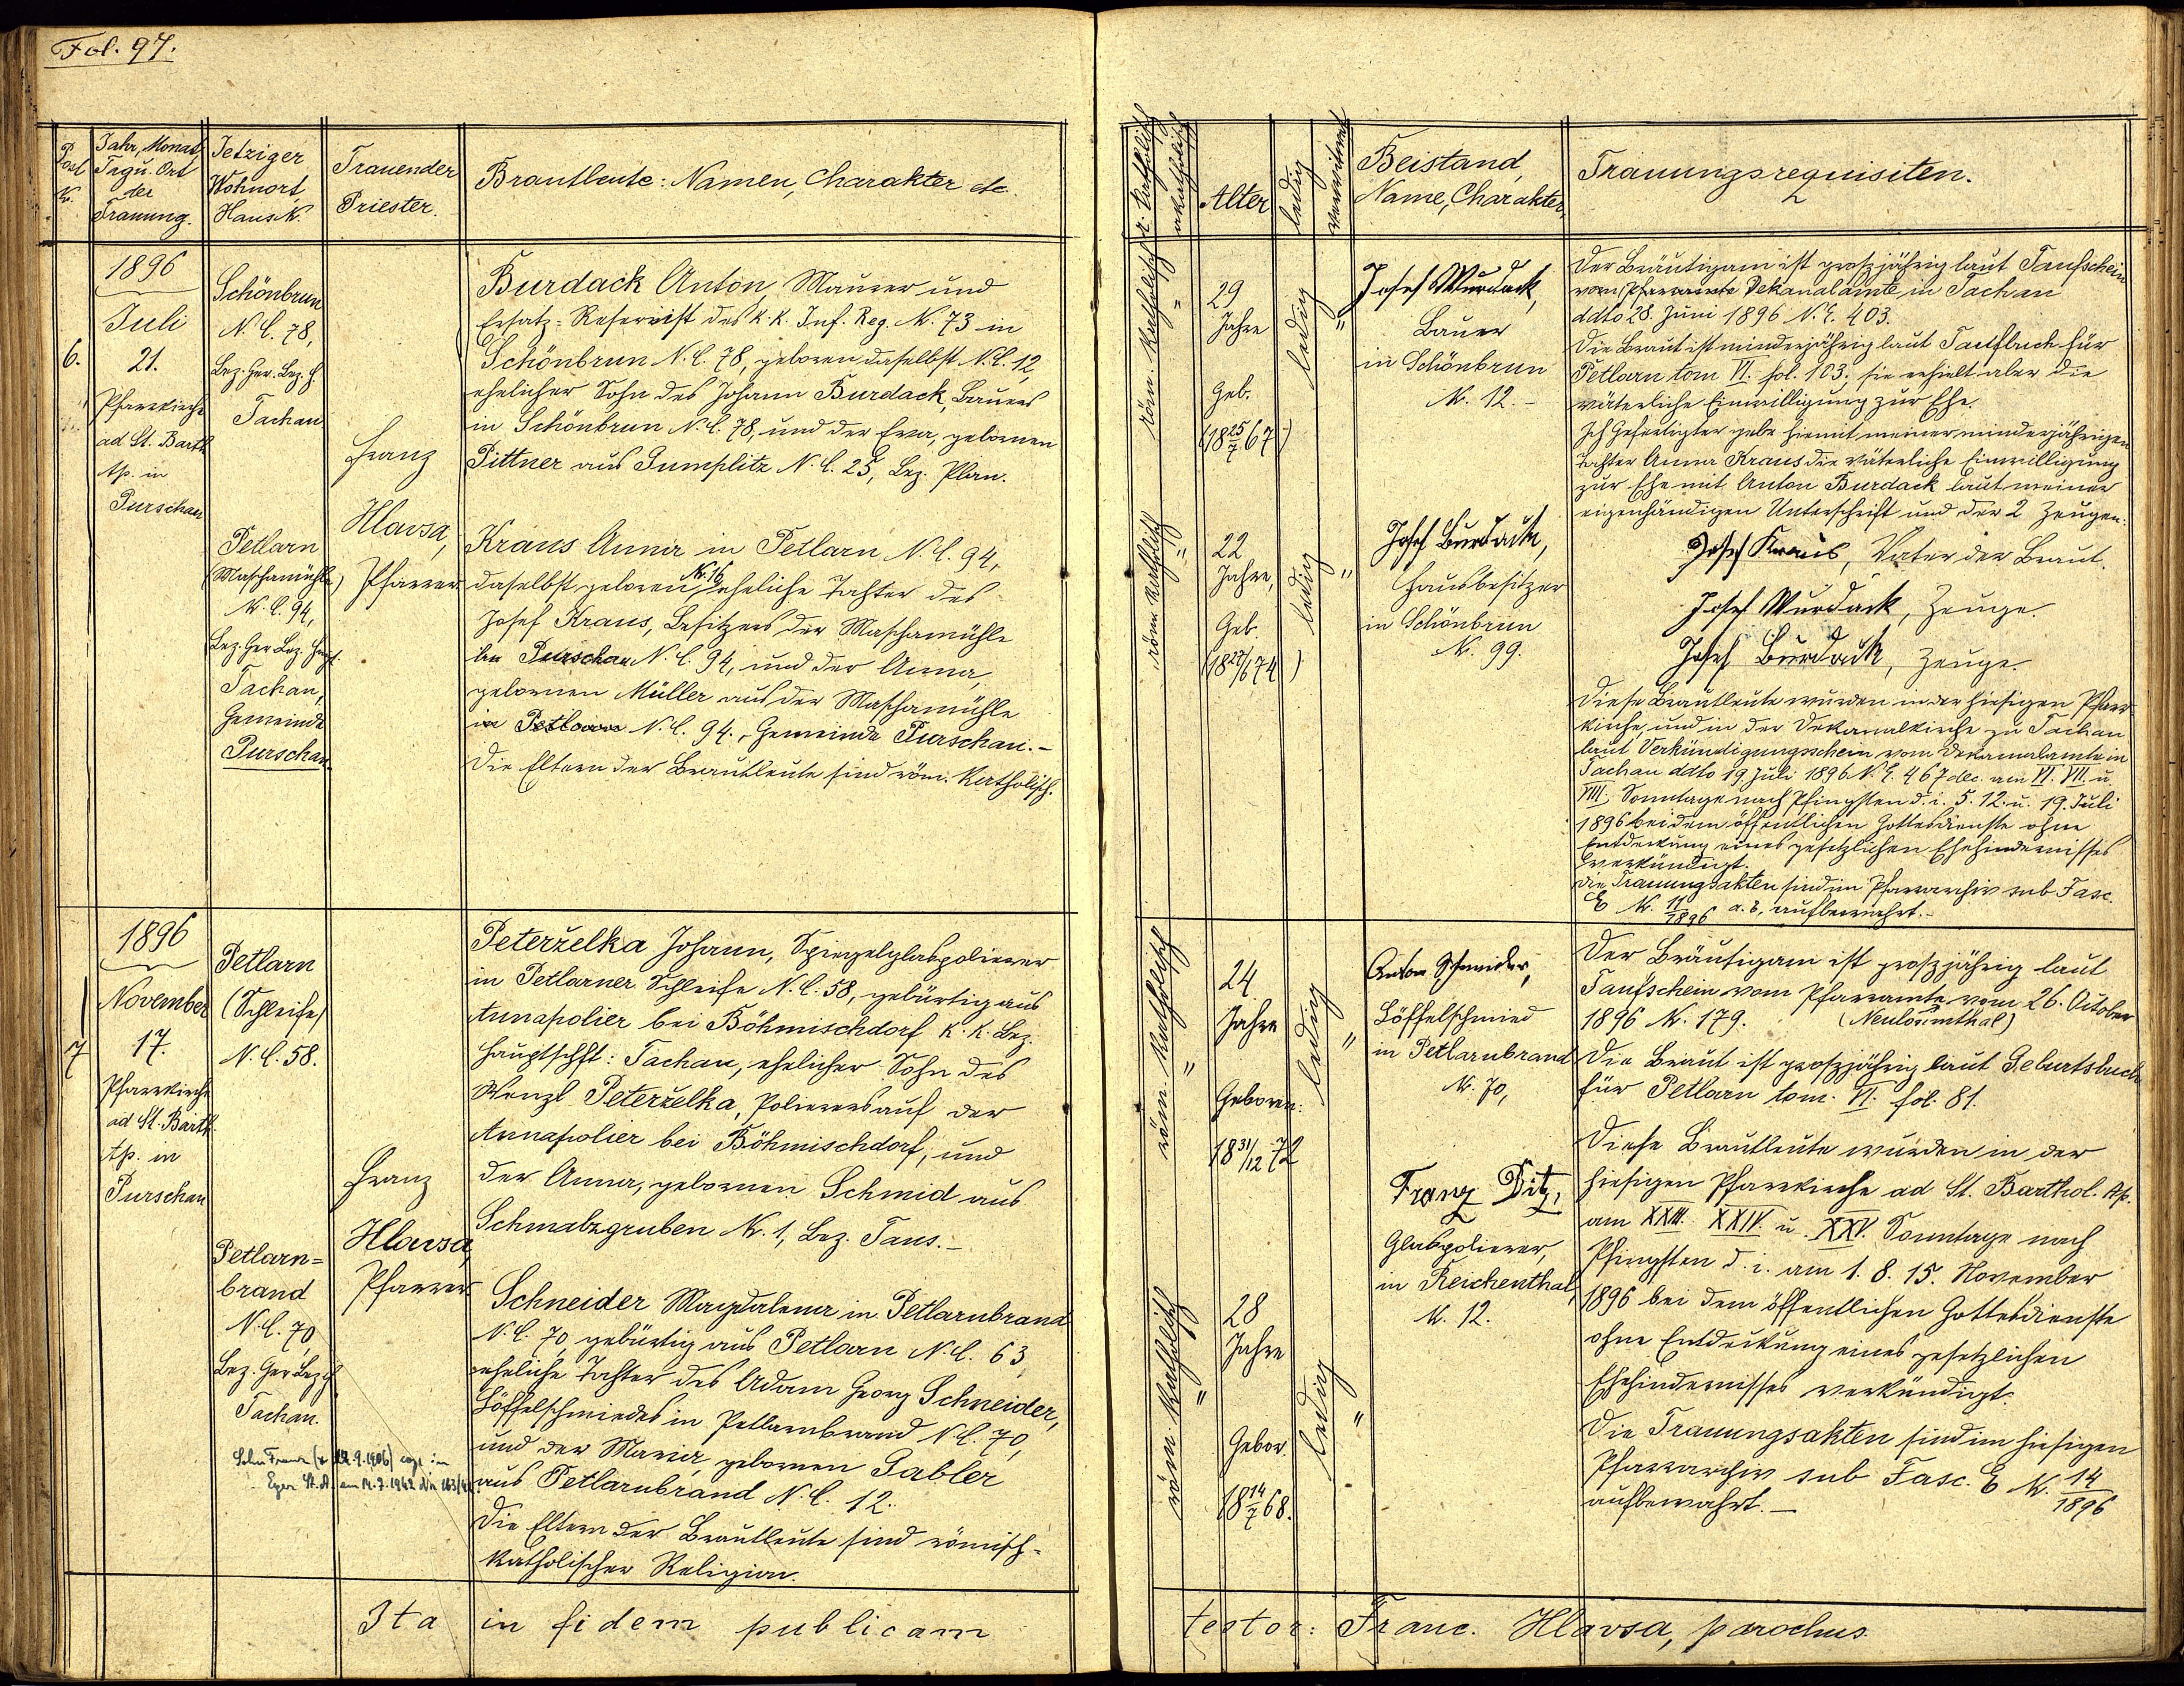 Fol. 97.
Post
N.
Jahr, Monat,
Tag u. Ort
der
Trauung.
Jetziger
Wohnort,
Haus N.
Trauender
Priester.
Brautleute: Namen, Charakter etc.
r. katholisch
akatholisch
Alter
ledig
verwitwet
Beistand,
Name, Charakter.
Trauungsrequisiten.
6.
1896
Juli
21.
Pfarrkirche
ad St. Barth.
Ap. in
Purschau
Schönbrun
N. C. 78,
Bez. Ger. Bez. H.
Tachau
Petlarn
(Maschamühle)
N. C. 94,
Bez. Ger. Bez. Hptf.
Tachau,
Gemeinde
Purschau.
Franz
Hlavsa,
Pfarrer
Burdack Anton, Maurer und
Ersatz-Reservist des k. k. Inf. Reg. N. 73 in
Schönbrun N. C. 78, geboren daselbst N. C. 12,
ehelicher Sohn des Johann Burdack, Bauers
in Schönbrun N. C. 78, und der Eva, gebornen
Pittner aus Gumplitz N. C. 25, Bez. Plan.
Kraus Anna in Petlarn N. C. 94,
daselbst geboren N. 16, eheliche Tochter des
Josef Kraus, Besitzers der Maschamühle
bei Purschau N. C. 94, und der Anna,
gebornen Müller aus der Maschamühle
in Petlarn N. C. 94, Gemeinde Purschau.-
Die Eltern der Brautleute sind röm. katholisch.
röm. katholisch
"
29
Jahre
Geb.
(18 25/7 67)
ledig
"
Josef Wurdack,
Bauer
in Schönbrun
N. 12.-
röm. katholisch
"
22
Jahre,
Geb.
(18 27/6 74)
ledig
"
Josef Burdack,
Hausbesitzer
in Schönbrun
N. 99.
Der Bräutigam ist großjährig laut Taufschein
vom Pfarramte Dekanalamte in Tachau
ddto 28. Juni 1896 N. E. 403.
Die Braut ist minderjährig laut Taufbuch für
Petlarn tom VI. fol. 103; sie erhielt aber die
väterliche Einwilligung zur Ehe.
Ich Gefertigter gebe hiemit meiner minderjährigen
Tochter Anna Kraus die väterliche Einwilligung
zur Ehe mit Anton Burdack laut meiner
eigenhändigen Unterschrift und der 2 Zeugen.
Josef Kraus, Vater der Braut.
Josef Wurdack, Zeuge.
Josef Burdack, Zeuge.
Diese Brautleute wurden in der hiesigen Pfarr-
kirche, und in der Dekanalkirche zu Tachau
laut Verkündigungsschein vom Dekanalamte in
Tachau ddto 19. Juli 1896 N. E. 467 am VI. VII. u
VIII. Sonntage nach Pfingsten d. i. 5. 12. u. 19. Juli
1896 bei dem öffentlichen Gottesdienste ohne
Entdeckung eines gesetzlichen Ehehindernisses
verkündigt.
Die Trauungsakten sind im Pfarrarchiv sub Fasc.
E N. 11/1896 a. b. aufbewahrt.-
7
1896
November
17.
Pfarrkirche
ad St. Barth.
Ap. in
Purschau
Petlarn
(Schleife)
N. C. 58.
Petlarn=
brand
N. C. 70,
Bez. Ger. Bez. H.
Tachau.
Franz
Hlavsa,
Pfarrer
Peterželka Johann, Spiegelglaspolierer
in Petlarner Schleife N. C. 58, gebürtig aus
Annapolier bei Böhmischdorf k. k. Bez.
Hauptschft: Tachau, ehelicher Sohn des
Wenzl Peterželka, Polierers auf der
Annapolier bei Böhmischdorf, und
der Anna, gebornen Schmid aus
Schmalzgruben N. 1, Bez. Taus.-
Schneider Magdalena in Petlarnbrand
N. C. 70, gebürtig aus Petlarn N. C. 63,
eheliche Tochter des Adam Georg Schneider,
Löffelschmiedes in Petlarnbrand N. C. 70,
und der Maria, gebornen Gabler
aus Petlarnbrand N. C. 12.
Die Eltern der Brautleute sind römisch-
katholischer Religion.
Sohn Franz (* 12.9.1906) cop. in
Eger St. A. am 14.7.1942 Nr. 163/42
röm. katholisch
"
24
Jahre
Geboren:
18 31/12 72
ledig
"
Anton Schneider,
Löffelschmied
in Petlarnbrand
N. 70,
röm. katholisch
"
28
Jahre
Gebor.
18 14/7 68.
ledig
"
Franz Ditz,
Glaspolierer,
in Reichenthal,
N. 12.
Der Bräutigam ist großjährig laut
Taufschein vom Pfarramte vom 26. October
1896 N. 179. (Neulosimthal)
Die Braut ist großjährig laut Geburtsbuch
für Petlarn tom. VI. fol. 81.
Diese Brautleute wurden in der
hiesigen Pfarrkirche ad St. Barthol. Ap.
am XXIII. XXIV. u. XXV. Sonntage nach
Pfingsten d. i. am 1. 8. 15. November
1896 bei dem öffentlichen Gottesdienste
ohne Entdeckung eines gesetzlichen
Ehehindernisses verkündigt.
Die Trauungsakten sind im hiesigen
Pfarrarchiv sub Fasc. E N. 14/1896
aufbewahrt.-
Ita in fidem publicam testor: Franc. Hlavsa, parochus.